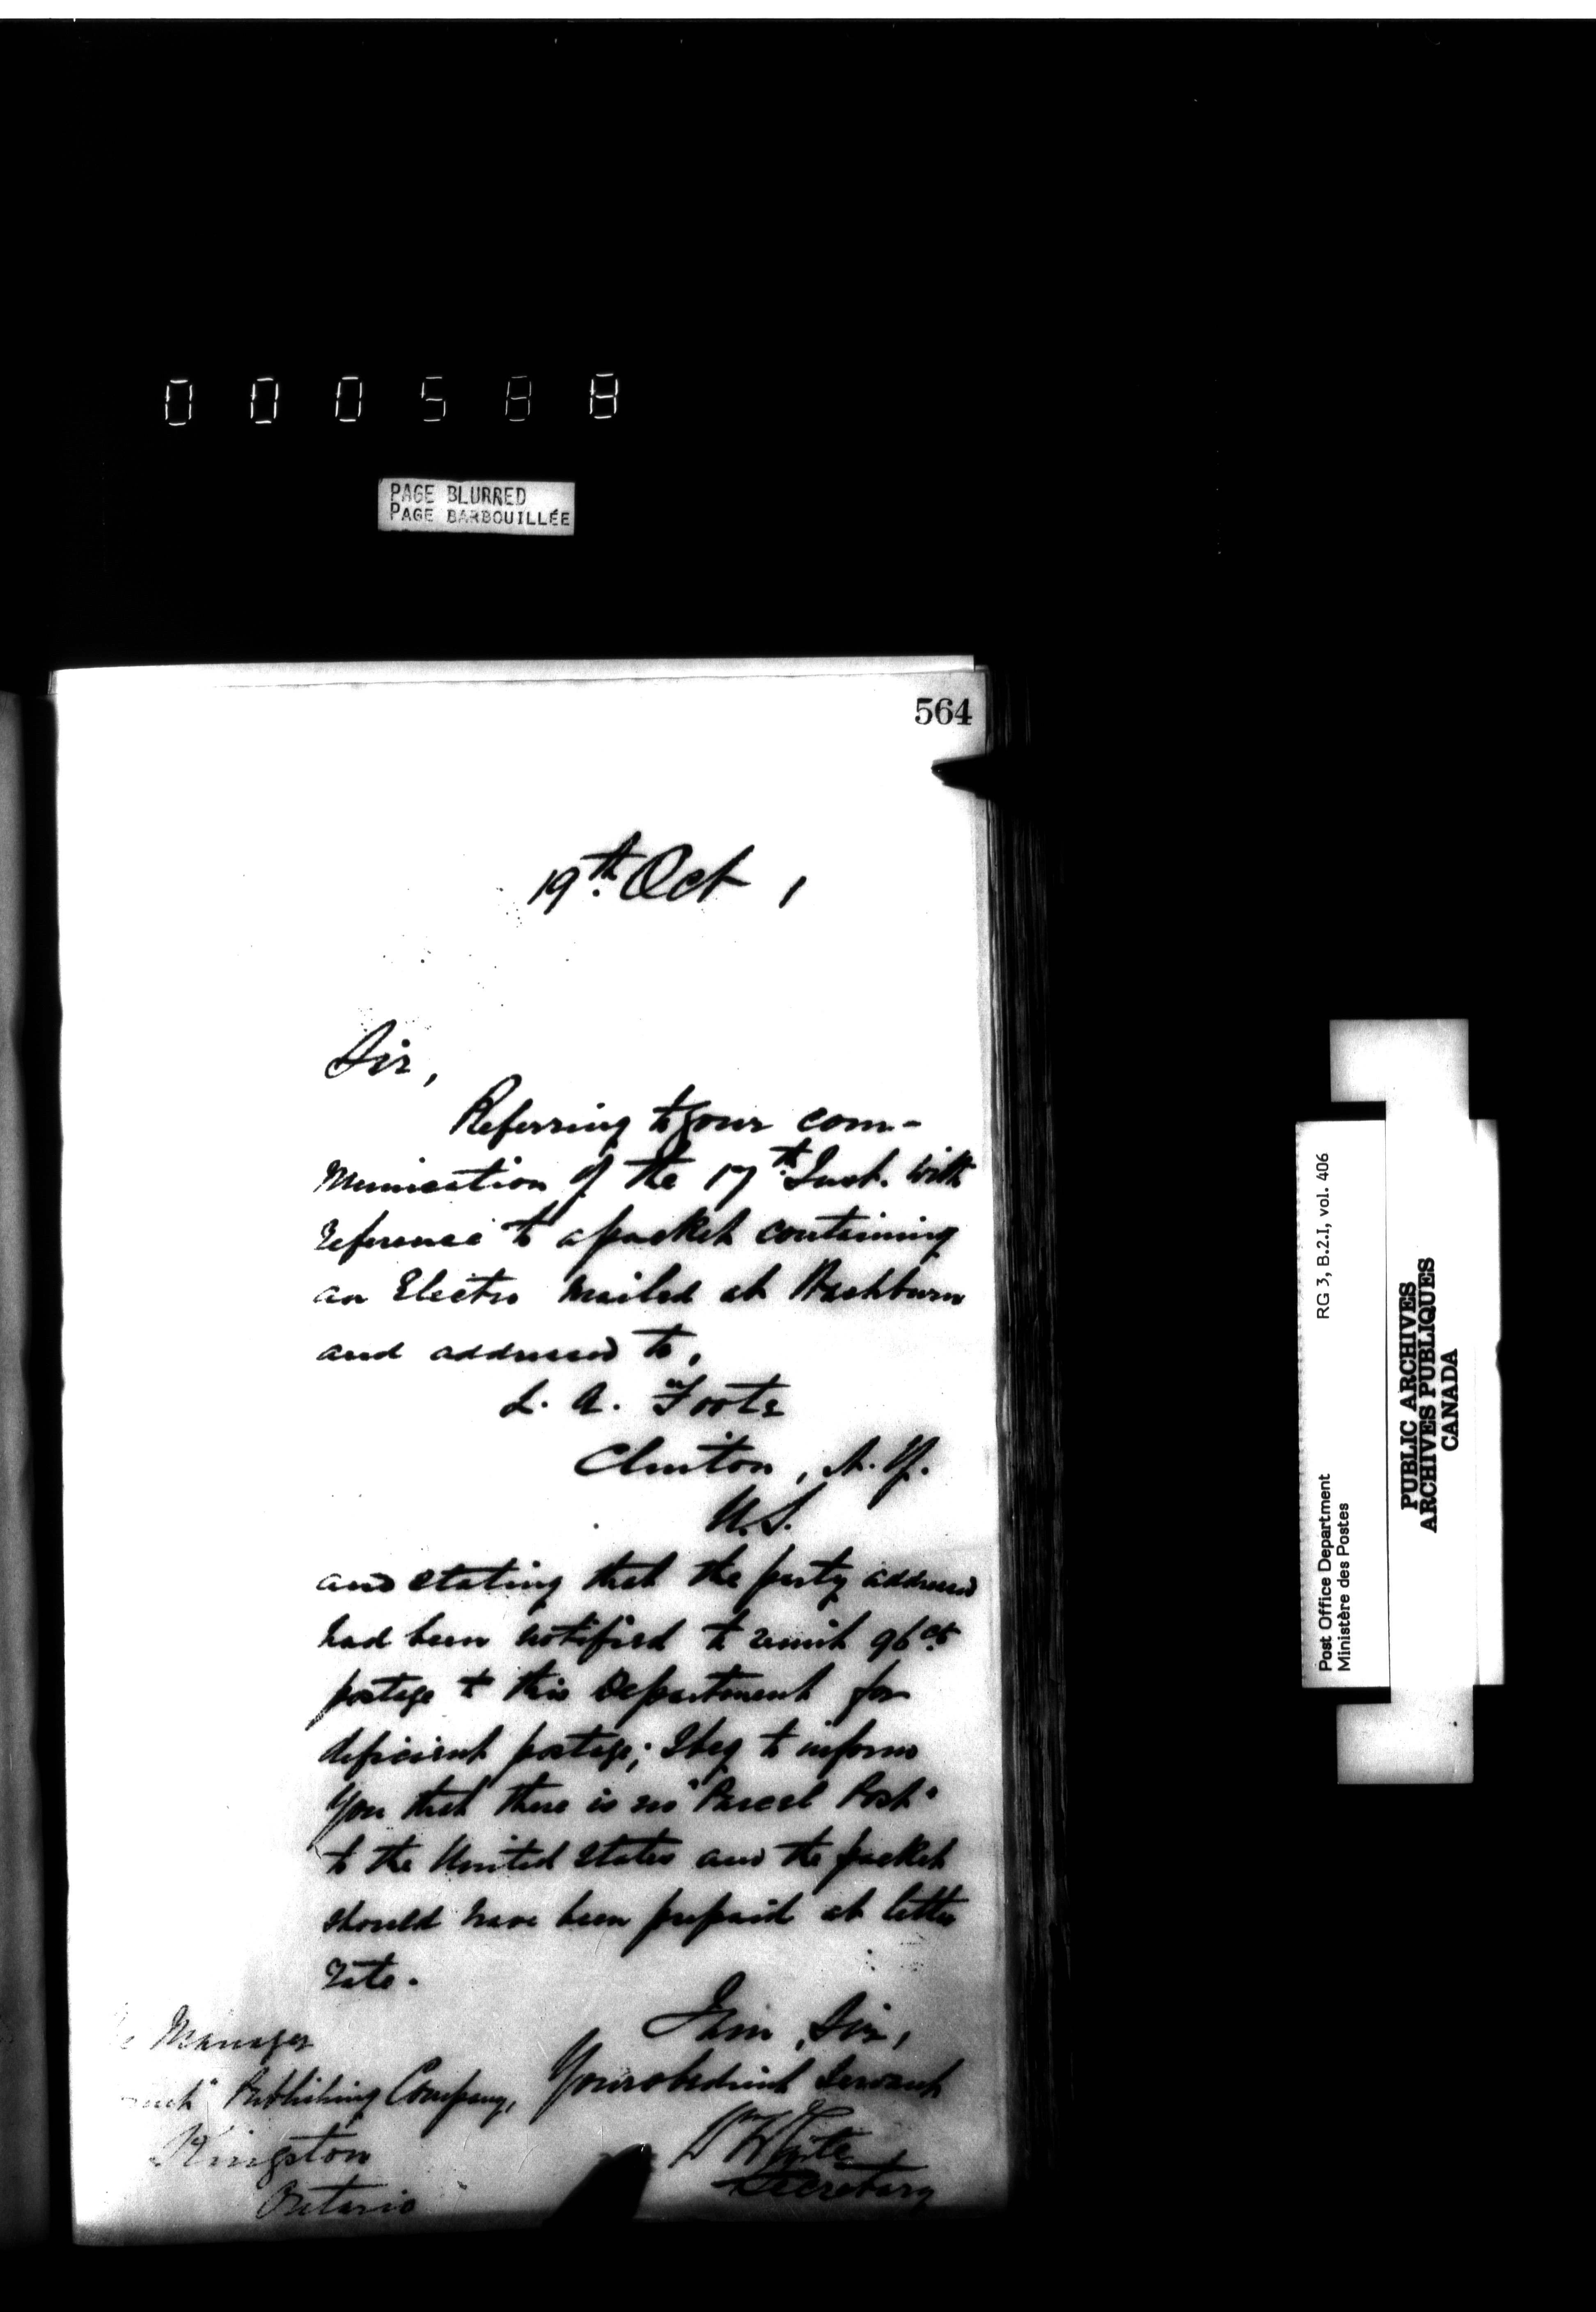 000588
PAGE BLURRED
PAGE BARBOUILLÉE
564
19th. Oct ,
Sir,
Referring to your com-
munication of the 17th. Inst. with
reference to a packet containing
an Electro mailed at Washburn
and addressed to,
L. A. Foote
Clinton, N.Y.
U.S.
and stating that the party addressed
had been notified to remit 96 cts
postage to this Department for
deficient postage; I beg to inform
you that there is no "Parcel Post"
to the United States and the packet
should have been prepaid at letter
rate.
I am, Sir,
Your obedient Servant
Wm White
Secretary
Manager
Publishing Company,
Kingston
Ontario
RG 3, B.2.I, vol. 406
Post Office Department
Ministère des Postes
PUBLIC ARCHIVES
ARCHIVES PUBLIQUES
CANADA